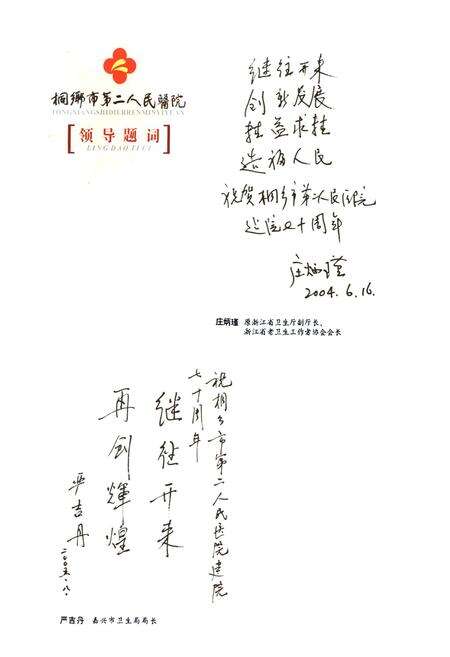 桐鄉市第二人民醫院
TONGXIANGSHIDIERRENMINYIYUAN
[领导题词]
LING DAO TI CI
继往开来
创新发展
精益求精
造福人民
祝贺桐乡市第二人民医院
建院七十周年
庄炳瑾
2004.6.16.
庄炳瑾 原浙江省卫生厅副厅长、
浙江省老卫生工作者协会会长
祝桐乡市第二人民医院建院
七十周年
继往开来
再创輝煌
严吉丹
二〇〇五.八.
严吉丹 嘉兴市卫生局局长